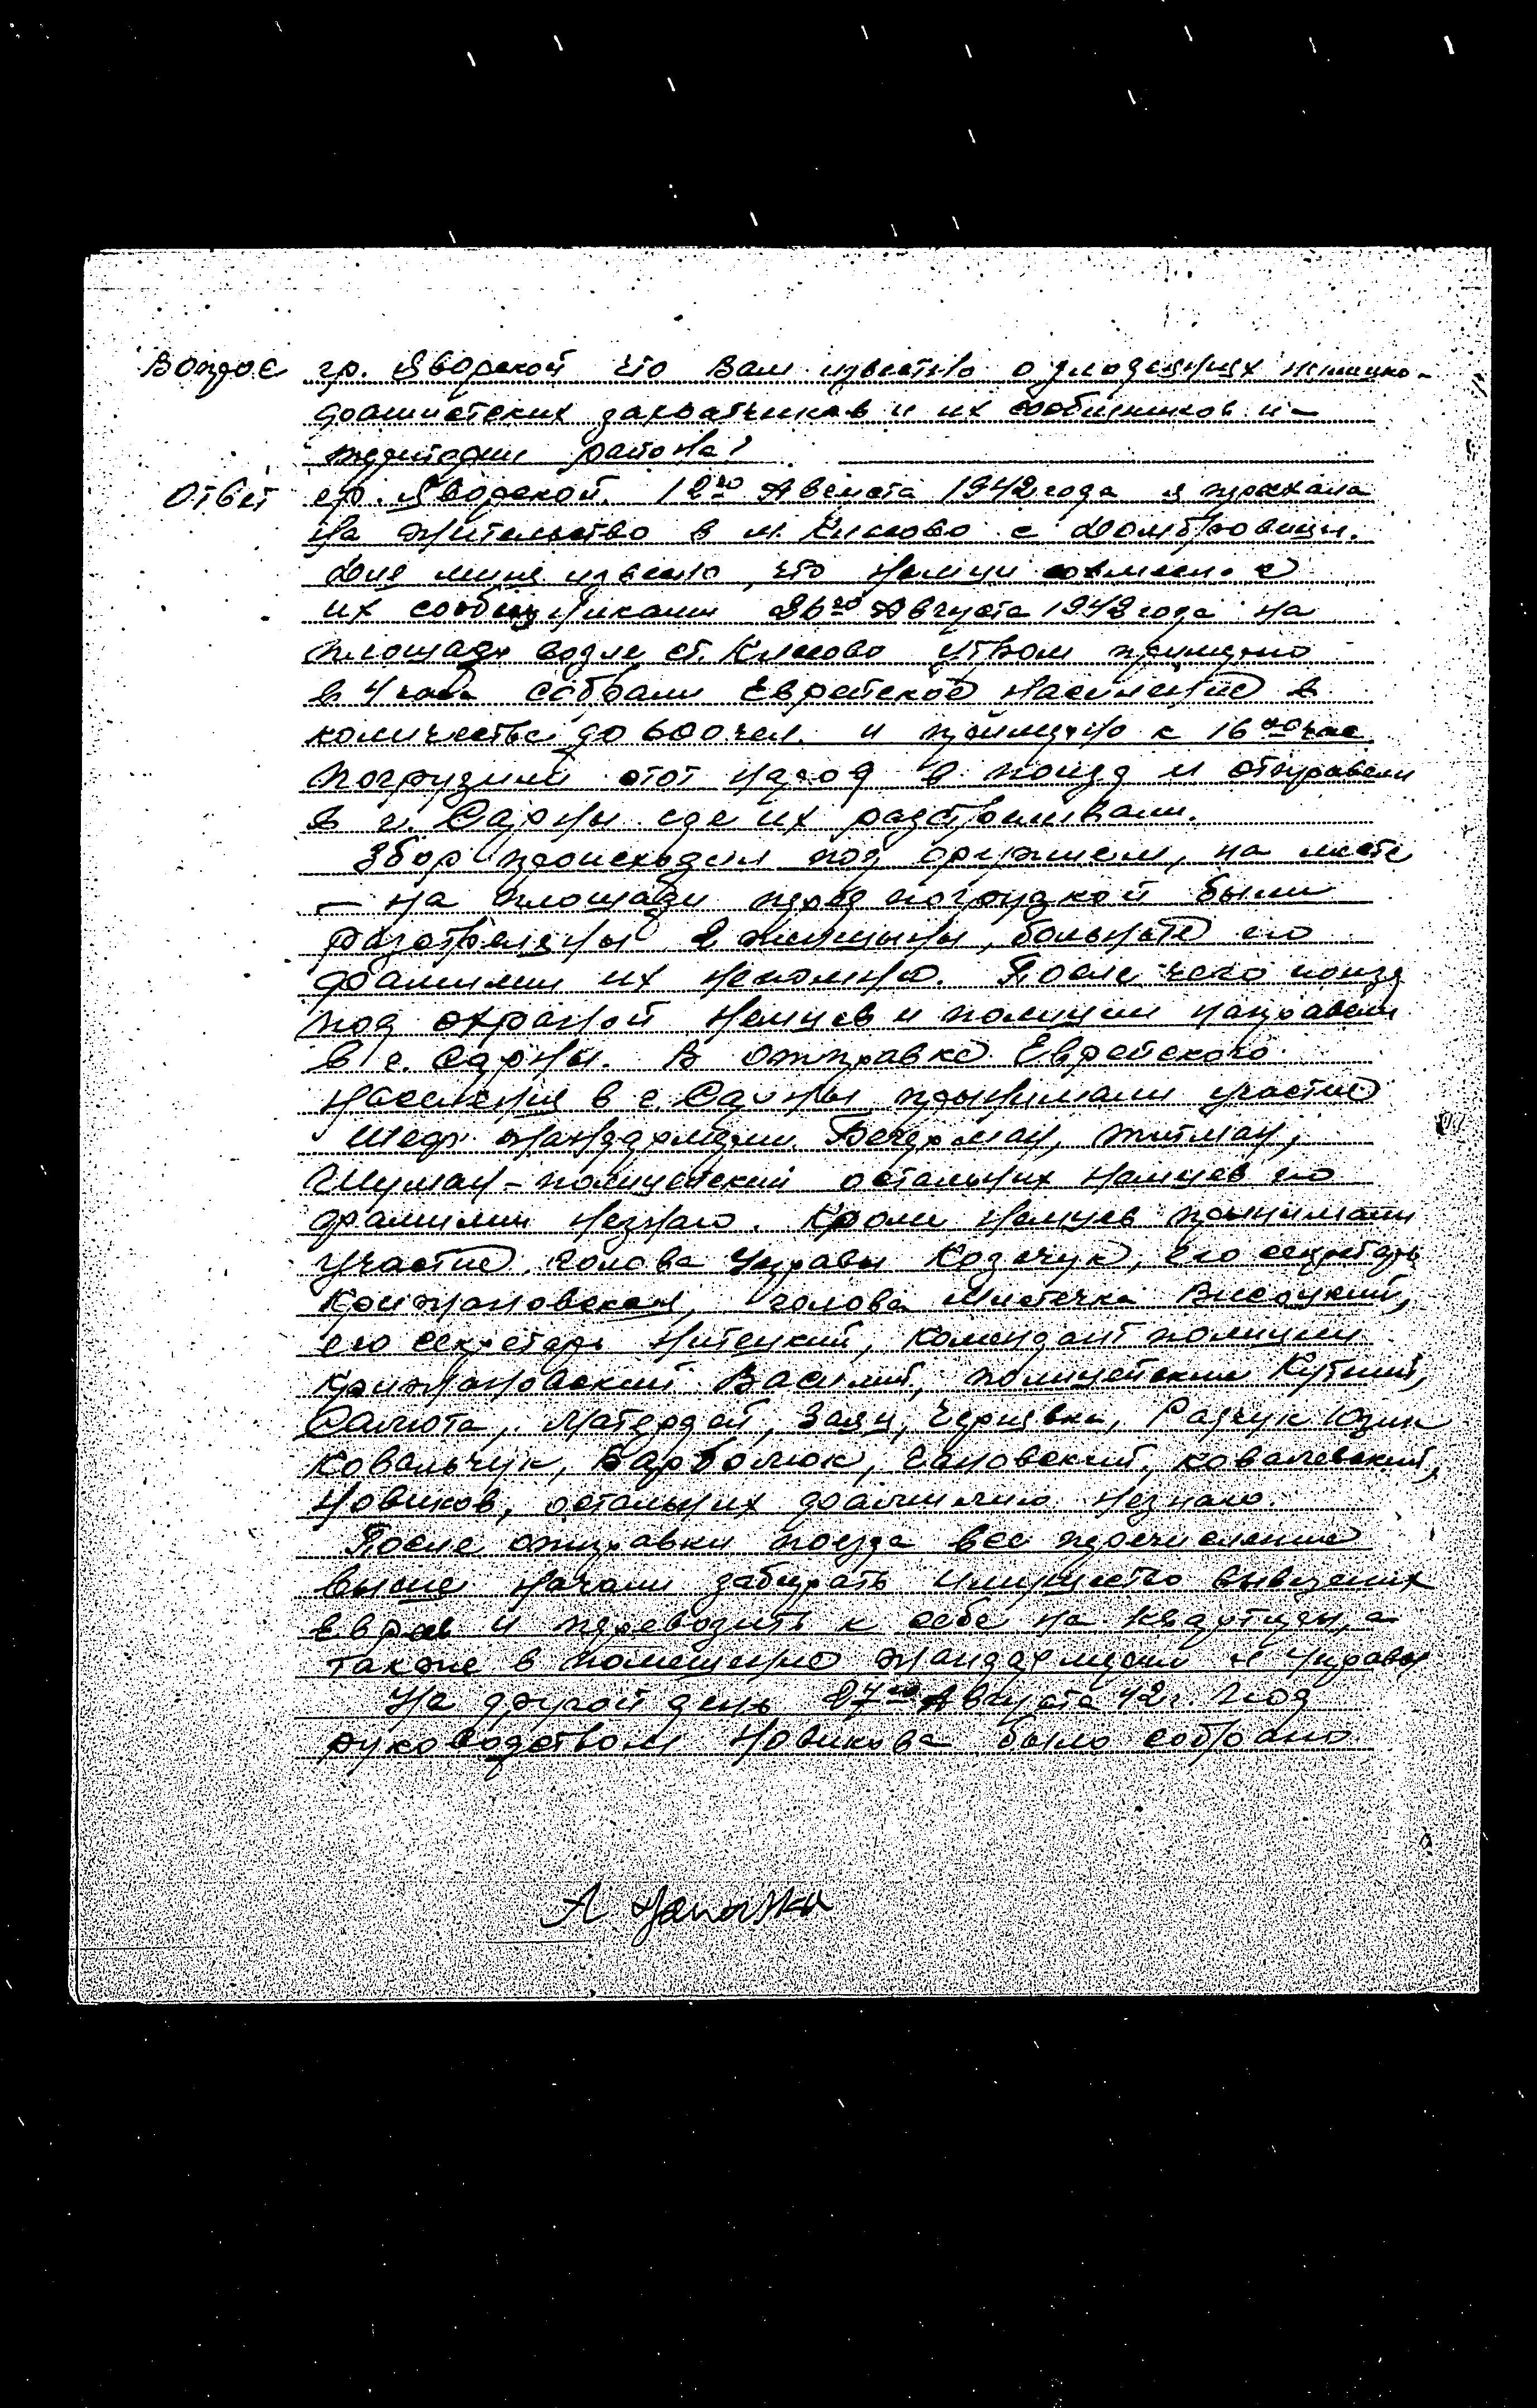 Вопрос гр. Яворской что Вам известно о злодеяниях немецко-
фашистских захватчиков и их сообщников н-
территории района?
Ответ гр. Яворской. 12го Августа 1942 года я приехала
на жительство в м. Клесово с Домбровици.
Для мине извесно, что немци совмесн. с
их сообщниками 26го Августа 1942 года на
площади возле ст. Клесово утром примерно
в 4 часа собрали Еврейское население в
количестве до 600 чел. и приймерно к 16 час
погрузили этот народ в поизд и отправели
в г. Сарны где их разстреливали.
Збор происходил под оружием, на месте
- на площади перед погрузкой были
разстреляны 2 женщины, больные но
фамилии их непомню. После чего поизд
под охраной немцев и полиции направели
в г. Сарны. В отправке Еврейского
населения в г. Сарны принимали участие
Шеф жандармерии Бечерман, Титман,
Шуман - полицейский остальних немцев но
фамилии незнаю. Кроми немцев принимали
участие, голова Управы Козачук, его секретарь
Крижановская, голова местечка Висоцкий,
его секретарь Нитецкий, Комендант полиции
Крижановский Василий, полицейские Кутний,
Салюта, Матердей, Заяц, Чернявка, Радчук Юзик
Ковальчук, Барболюк, Сановский, Ковалевский,
Новиков, остальних фамилию незнаю.
После отправки поезда все перечисление
выше начали забирать имущество вывезених
Евреев и перевозить к себе на квартири, а
также в помещению жандармерии и управы
На другой день 27го Августа 42 г. под
руководством Новикова было собрано
A. Jaworska